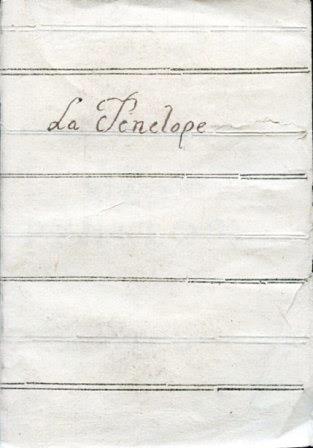 La Penelope